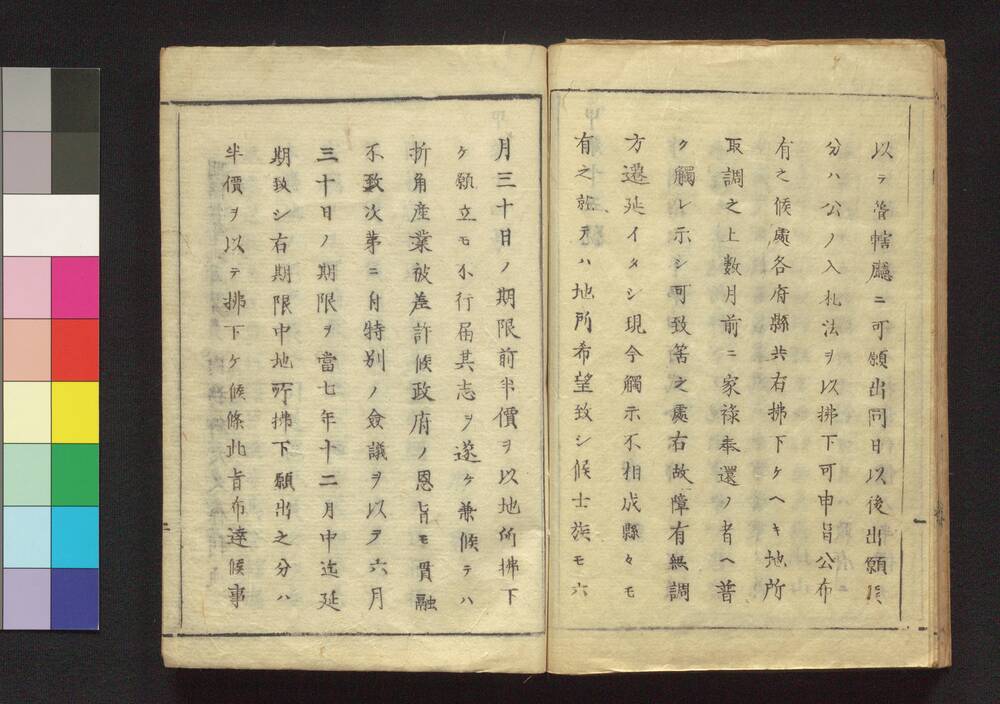 以テ管轄廳ニ可願出同日以後出願ノ
分ハ公ノ入札法ヲ以拂下可申旨公布
有之候處各府縣共右拂下ケヘキ地所
取調之上数月前ニ家祿奉還ノ者ヘ普
ク觸レ示シ可致筈之處右故障有無調
方遷延イタシ現今觸示不相成縣々モ
有之就テハ地所希望致シ候士族モ六
月三十日ノ期限前半價ヲ以地所拂下
ケ願立モ不行届其志ヲ遂ケ兼候テハ
折角産業被差許候政府ノ恩旨モ貫融
不致次第ニ付特別ノ僉議ヲ以テ六月
三十日ノ期限ヲ當七年十二月中迄延
期致シ右期限中地所拂下願出之分ハ
半價ヲ以テ拂下ケ候條此旨布達候事